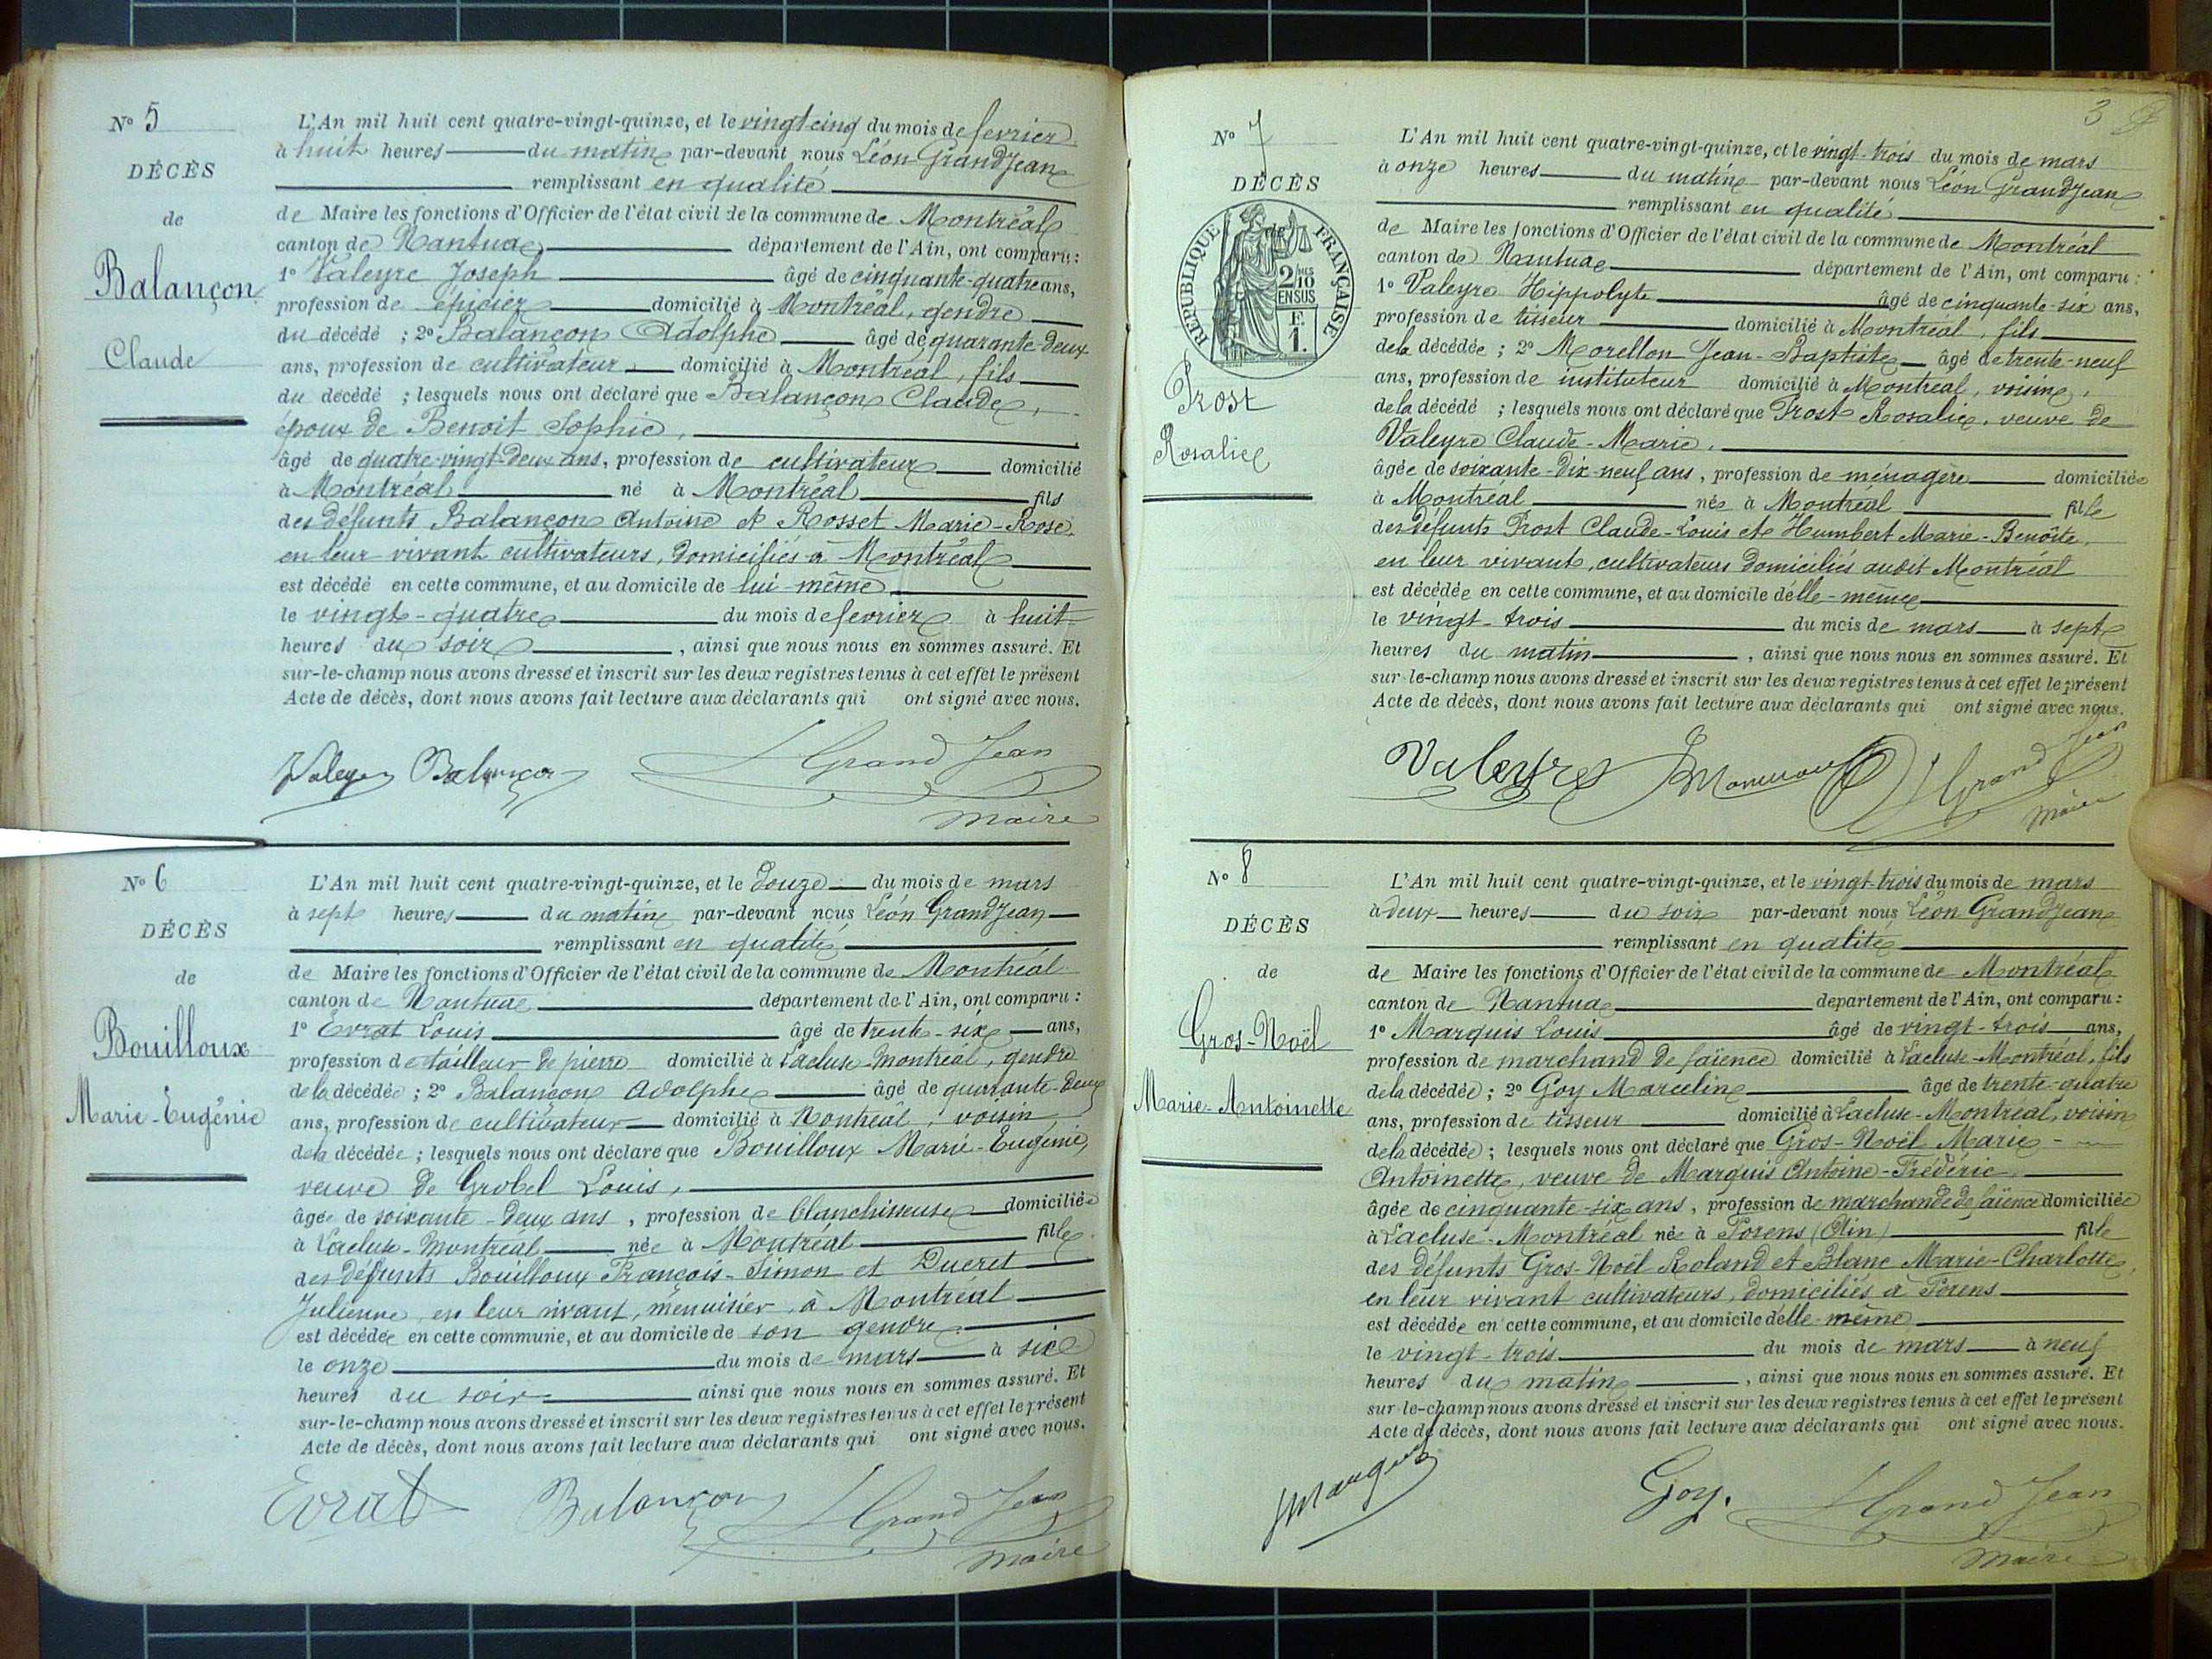 N° 5
DÉCÈS
de
Balançon
Claude
L'An mil huit cent quatre-vingt-quinze, et le vingt cinq du mois de fevrier
à huit heures du matin par-devant nous Léon GrandJean
remplissant en qualité
de Maire les fonctions d'Officier de l'état civil de la commune de Montréal
canton de Nantua département de l'Ain, ont comparu:
1° Valeyre Joseph âgé de cinquante-quatre ans,
profession de épicier domicilié à Montréal, gendre
du décédé ; 2° Balançon Adolphe âgé de quarante-deux
ans, profession de cultivateur domicilié à Montréal, fils
du décédé ; lesquels nous ont déclaré que Balançon Claude,
époux de Benoit Sophie,
âgé de quatre-vingt-deux ans, profession de cultivateur domicilié
à Montréal né à Montréal fils
des défunts Balançon Antoine et Rosset Marie-Rose,
en leur vivant cultivateurs, domiciliés à Montréal
est décédé en cette commune, et au domicile de lui-même
le vingt-quatre du mois de fevrier à huit
heures du soir, ainsi que nous nous en sommes assuré. Et
sur-le-champ nous avons dressé et inscrit sur les deux registres tenus à cet effet le présent
Acte de décès, dont nous avons fait lecture aux déclarants qui ont signé avec nous.
Valeyre Balançon LGrandJean
Maire
N° 6
DÉCÈS
de
Bouilloux
Marie-Eugénie
L'An mil huit cent quatre-vingt-quinze, et le douze du mois de mars
à sept heures du matin par-devant nous Léon GrandJean
remplissant en qualité
de Maire les fonctions d'Officier de l'état civil de la commune de Montréal
canton de Nantua département de l'Ain, ont comparu :
1° Evrat Louis âgé de trente-six ans,
profession de tailleur de pierre domicilié à Lacluse-Montréal, gendre
de la décédée ; 2° Balançon Adolphe âgé de quarante-deux
ans, profession de cultivateur domicilié à Montréal, voisin
de la décédée ; lesquels nous ont déclaré que Bouilloux Marie-Eugénie,
veuve de Grobel Louis,
âgée de soixante-deux ans, profession de blanchisseuse domiciliée
à Lacluse-Montréal née à Montréal fille
des défunts Bouilloux François-Simon et Ducret
Julienne, en leur vivant, menuisier, à Montréal
est décédée en cette commune, et au domicile de son gendre
le onze du mois de mars à six
heures du soir ainsi que nous nous en sommes assuré. Et
sur-le-champ nous avons dressé et inscrit sur les deux registres tenus à cet effet le présent
Acte de décès, dont nous avons fait lecture aux déclarants qui ont signé avec nous.
Evrat Balançon LGrandJean
Maire
3
N° 7
DÉCÈS
de
RÉPUBLIQUE FRANÇAISE
2/10 EN SUS
F. 1.
Prost
Rosalie
L'An mil huit cent quatre-vingt-quinze, et le vingt-trois du mois de mars
à onze heures du matin par-devant nous Léon GrandJean
remplissant en qualité
de Maire les fonctions d'Officier de l'état civil de la commune de Montréal
canton de Nantua département de l'Ain, ont comparu :
1° Valeyre Hippolyte âgé de cinquante-six ans,
profession de tisseur domicilié à Montréal, fils
de la décédée ; 2° Morellon Jean-Baptiste âgé de trente-neuf
ans, profession de instituteur domicilié à Montréal, voisin,
de la décédé ; lesquels nous ont déclaré que Prost Rosalie, veuve de
Valeyre Claude-Marie,
âgée de soixante-dix-neuf ans, profession de ménagère domiciliée
à Montréal née à Montréal fille
des défunts Prost Claude-Louis et Humbert Marie-Benoîte,
en leur vivant, cultivateurs domiciliés audit Montréal
est décédée en cette commune, et au domicile d'elle-même
le vingt-trois du mois de mars à sept
heures du matin, ainsi que nous nous en sommes assuré. Et
sur-le-champ nous avons dressé et inscrit sur les deux registres tenus à cet effet le présent
Acte de décès, dont nous avons fait lecture aux déclarants qui ont signé avec nous.
Valeyre LGrandJean
Maire
N° 8
DÉCÈS
de
Gros-Noël
Marie-Antoinette
L'An mil huit cent quatre-vingt-quinze, et le vingt-trois du mois de mars
à deux heures du soir par-devant nous Léon GrandJean
remplissant en qualité
de Maire les fonctions d'Officier de l'état civil de la commune de Montréal
canton de Nantua département de l'Ain, ont comparu :
1° Marquis Louis âgé de vingt-trois ans,
profession de marchand de faïence domicilié à Lacluse-Montréal, fils
de la décédée ; 2° Goy Marcelin âgé de trente-quatre
ans, profession de tisseur domicilié à Lacluse-Montréal, voisin
de la décédée ; lesquels nous ont déclaré que Gros-Noël Marie-
Antoinette, veuve de Marquis Antoine-Frédéric
âgée de cinquante-six ans, profession de marchande de faïence domiciliée
à Lacluse-Montréal née à Porens (Ain) fille
des défunts Gros-Noël Roland et Blanc Marie-Charlotte,
en leur vivant cultivateurs, domiciliés à Porens
est décédée en cette commune, et au domicile d'elle-même
le vingt-trois du mois de mars à neuf
heures du matin, ainsi que nous nous en sommes assuré. Et
sur-le-champ nous avons dressé et inscrit sur les deux registres tenus à cet effet le présent
Acte de décès, dont nous avons fait lecture aux déclarants qui ont signé avec nous.
Marquis Goy. LGrandJean
Maire